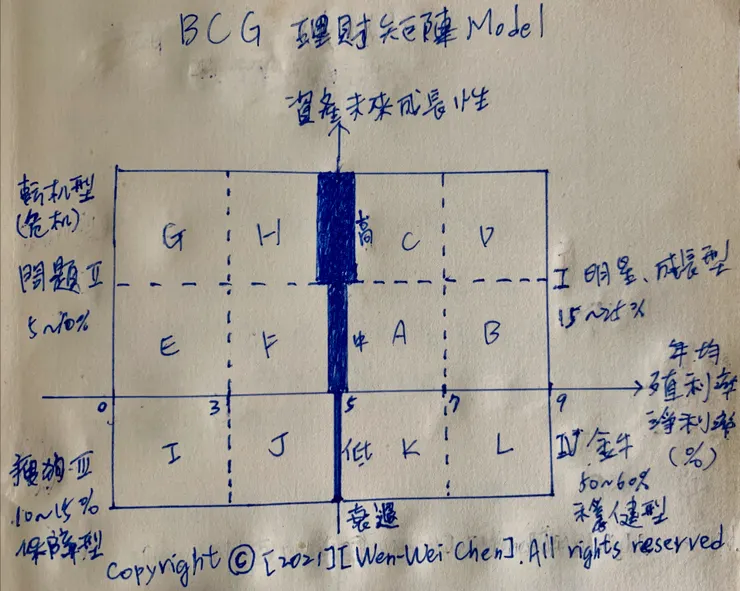 BCG 理財矩陣 Model
資產未來成長性
転机型
(危机)
問題 II
5~10%
G H 高 C D
I 明星、成長型
15~25%
E F 中 A B
年均
殖利率
淨利率
(%)
0 3 5 7 9
I J 低 K L
瘦狗 III
10~15%
保障型
IV 金牛
50~60%
穩健型
衰退
Copyright © [2021] [Wen-Wei Chen]. All rights reserved